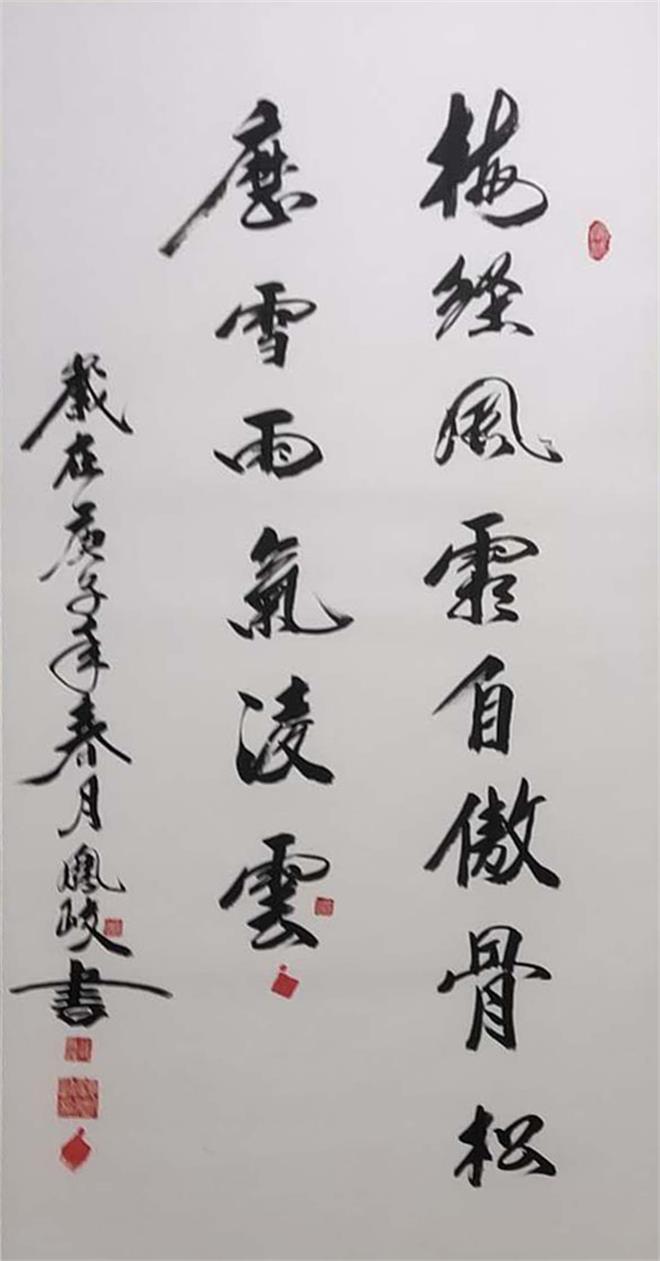 梅經風霜自傲骨松
歷雪雨氣凌雲
歲在庚子年春月鳳岐書